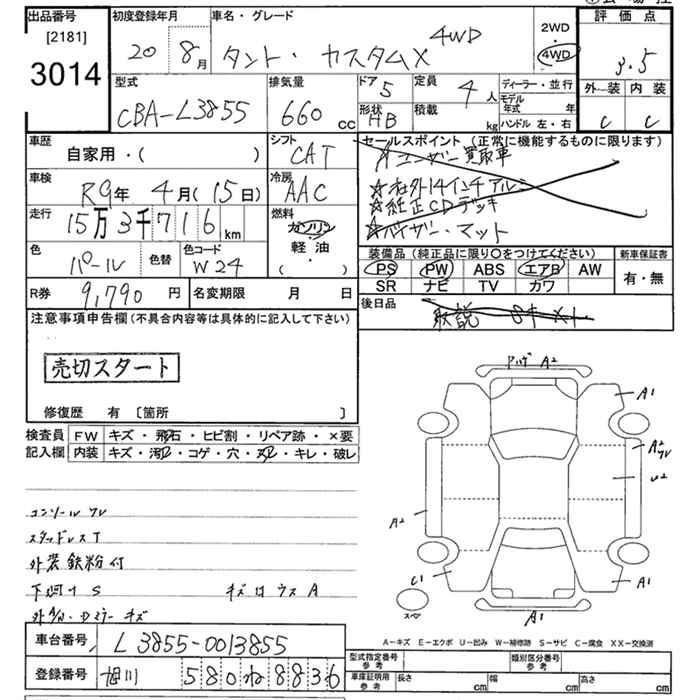 出品番号
[2181]
3014
初度登録年月
20 8月
車名・グレード
タント・カスタムX 4WD
2WD
・
4WD
評価点
3.5
外装 内装
C C
型式
CBA-L385S
排気量
660 cc
ドア 5
形状 HB
定員 4人
積載 kg
ディーラー・並行
モデル年式 年
ハンドル 左・右
車歴
自家用・( )
シフト
CAT
車検
R9年 4月(15日)
冷房
AAC
走行
15万3千716km
燃料
ガソリン
軽・油
( )
色
パール
色替
色コード
W24
R券 9,790円
名変期限 月 日
セールスポイント(正常に機能するものに限ります)
☆ユーザー買取車
☆社外14インチアルミ
☆純正CDデッキ
☆バイザー・マット
装備品(純正品に限り○をつけてください)
PS PW ABS エアB AW
SR ナビ TV カワ
新車保証書
有・無
後日品
取説
注意事項申告欄(不具合内容等は具体的に記入して下さい)
売切スタート
修復歴 有 〔箇所 〕
検査員記入欄
FW キズ・飛石・ヒビ割・リペア跡・×要
内装 キズ・汚れ・コゲ・穴・スレ・キレ・破レ
コンソールワレ
スタッドレスT
外装鉄粉付
下廻りS
キズ凹ウスA
A2
A1
A2
ワレ
U2
A2
C1
A1
スペア
A1
A-キズ E-エクボ U-凹み W-補修跡 S-サビ C-腐食 XX-交換済
車台番号 L385S-0013855
登録番号 旭川 580 ね 8836
型式指定番号
参考
類別区分番号
参考
車庫証明用
参考
長さ cm
幅 cm
高さ cm